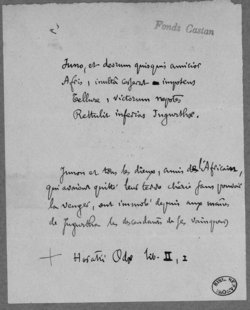 Fonds Castan
Juno, et deorum quisquis amicior
Afris, inultâ cesserat impotens
Tellure, victorum nepotes
Rettulit inferias Jugurthæ.
Junon et tous les dieux, amis de l'Africain,
qui avaient quitté leur terre chérie sans pouvoir
la venger, ont immolé depuis aux mânes
de Jugurtha les descendants de ses vainqueurs
+ Horatii Odæ lib. II, 1